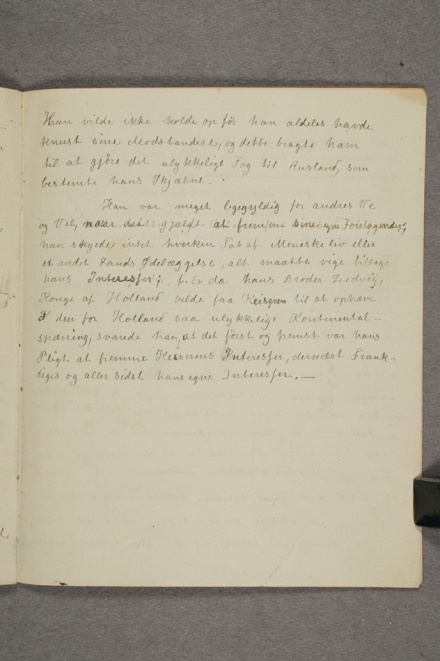 Han vilde ikke holde op før han aldeles havde
knust sine Modstandere, og dette bragte ham
til at gjøre det ulykkelige Tog til Rusland, som
bestemte hans Skjæbne.
Han var meget ligegyldig for andres Ve
og Vel, naar det gjældt at fremme sine egne Foretagender;
han skyede intet hverken Tab af Menneskeliv eller
et andet Lands Ødelæggelse, alt maatte vige tilbage
hans Interesser; f. Ex da hans Broder Ludvig,
Konge af Holland vilde faa Keiseren til at ophæve
den for Holland saa ulykkelige Kontinental-
spærring, svarede han, at det først og fremst var hans
Pligt at fremme Keiserens Interesser, dernæst Frank-
riges og aller sidst hans egne Interesser. —